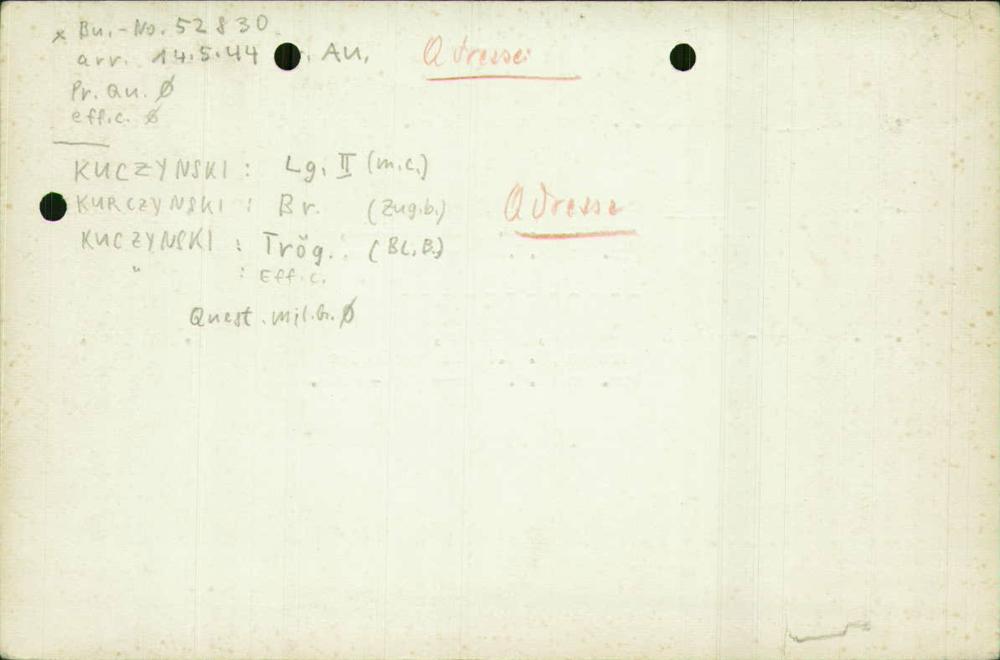 x Bu.-No. 52830
arr. 14.5.44 . AU. Adresse:
Pr. Qu. Ø
eff.c. Ø
KUCZYNSKI : Lg. II (m.c.)
KURCZYNSKI : Br. (Zug.b.) Adresse
KUCZYNSKI : Trög. : (BL.B.)
" : Eff.c.
Quest. mil.b. Ø